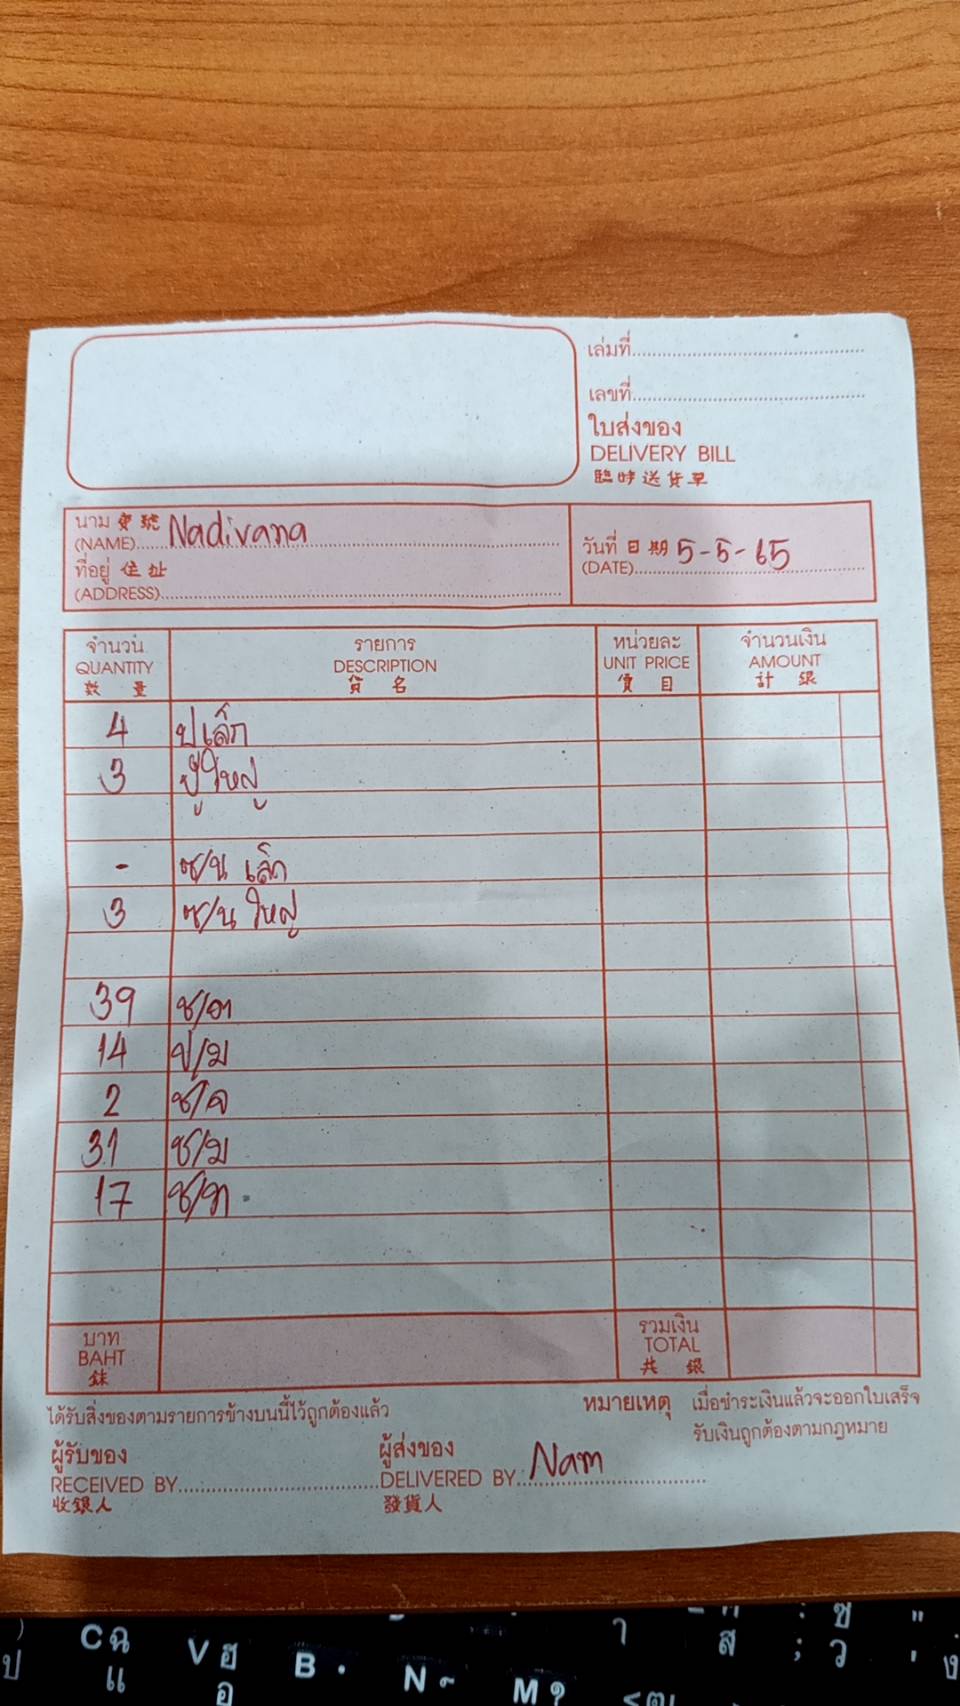 เล่มที่
เลขที่
ใบส่งของ
DELIVERY BILL
臨時送货單
นาม 寶號 Nadivana
(NAME)
วันที่ 日期 5-5-65
(DATE)
ที่อยู่ 住址
(ADDRESS)
จำนวน รายการ หน่วยละ จำนวนเงิน
QUANTITY DESCRIPTION UNIT PRICE AMOUNT
數量 貨名 價目 計銀
4 ปูเล็ก
3 ปูใหญ่
- ซ/น เล็ก
3 ซ/น ใหญ่
39
14 ป/ม
2 ช/จ
31 ช/ม
17
บาท รวมเงิน
BAHT TOTAL
銖 共銀
ได้รับสิ่งของตามรายการข้างบนนี้ไว้ถูกต้องแล้ว
หมายเหตุ เมื่อชำระเงินแล้วจะออกใบเสร็จ
รับเงินถูกต้องตามกฎหมาย
ผู้รับของ ผู้ส่งของ
RECEIVED BY DELIVERED BY Nam
收銀人 發貨人
C ฉ แ
V ฮ อ
B
N
M
ป
า
ส
; ซ ว
ง